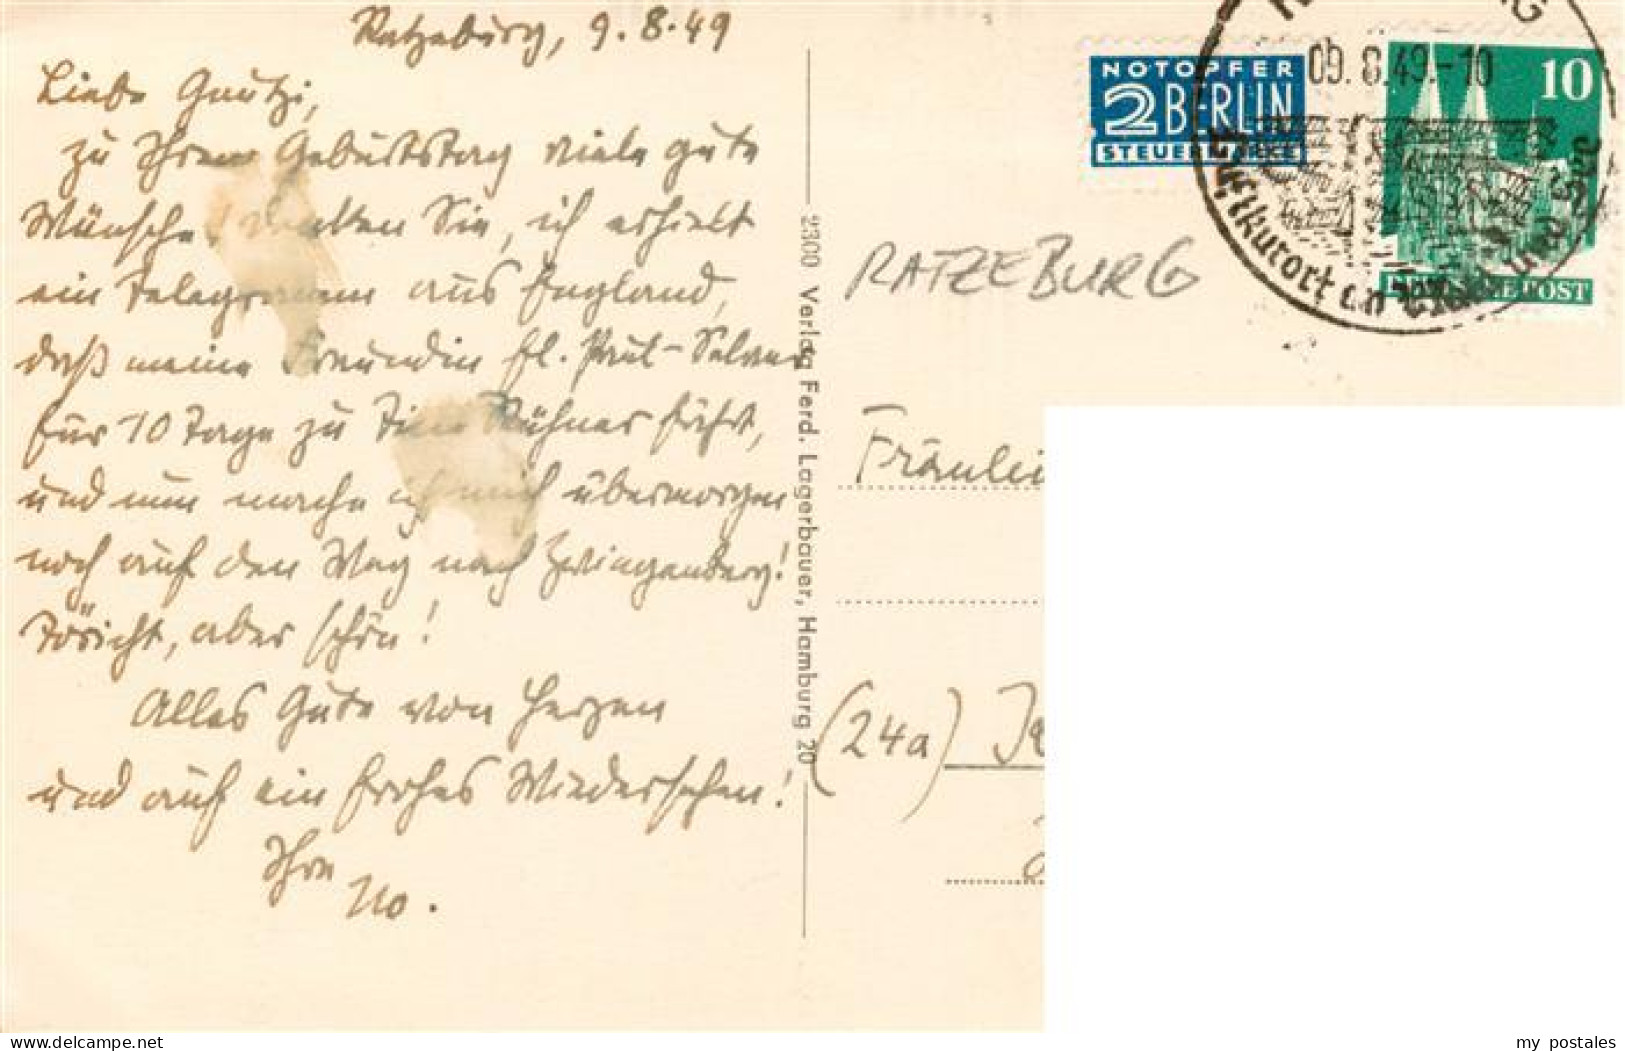 Ratzeburg, 9.8.49
Liebe Gautzi,
zu Ihrem Geburtstag viele gute
Wünsche! Denken Sie, ich erhielt
ein Telegramm aus England,
daß meine Freundin Paul-
für 10 Tage zu fährt,
und nun mache ich mich übermorgen
noch auf den Weg nach Zwingenberg!
Töricht, aber schön!
Alles Gute von Herzen
und auf ein frohes Wiedersehen!
Ihre
No.
2300 Verlag Ferd. Lagerbauer, Hamburg 20
NOTOPFER
2 BERLIN
STEUERMARKE
09.8.49.-10
Luftkurort an
10
DEUTSCHE POST
RATZEBURG
Fräulei
(24a)
myehxpostales.com